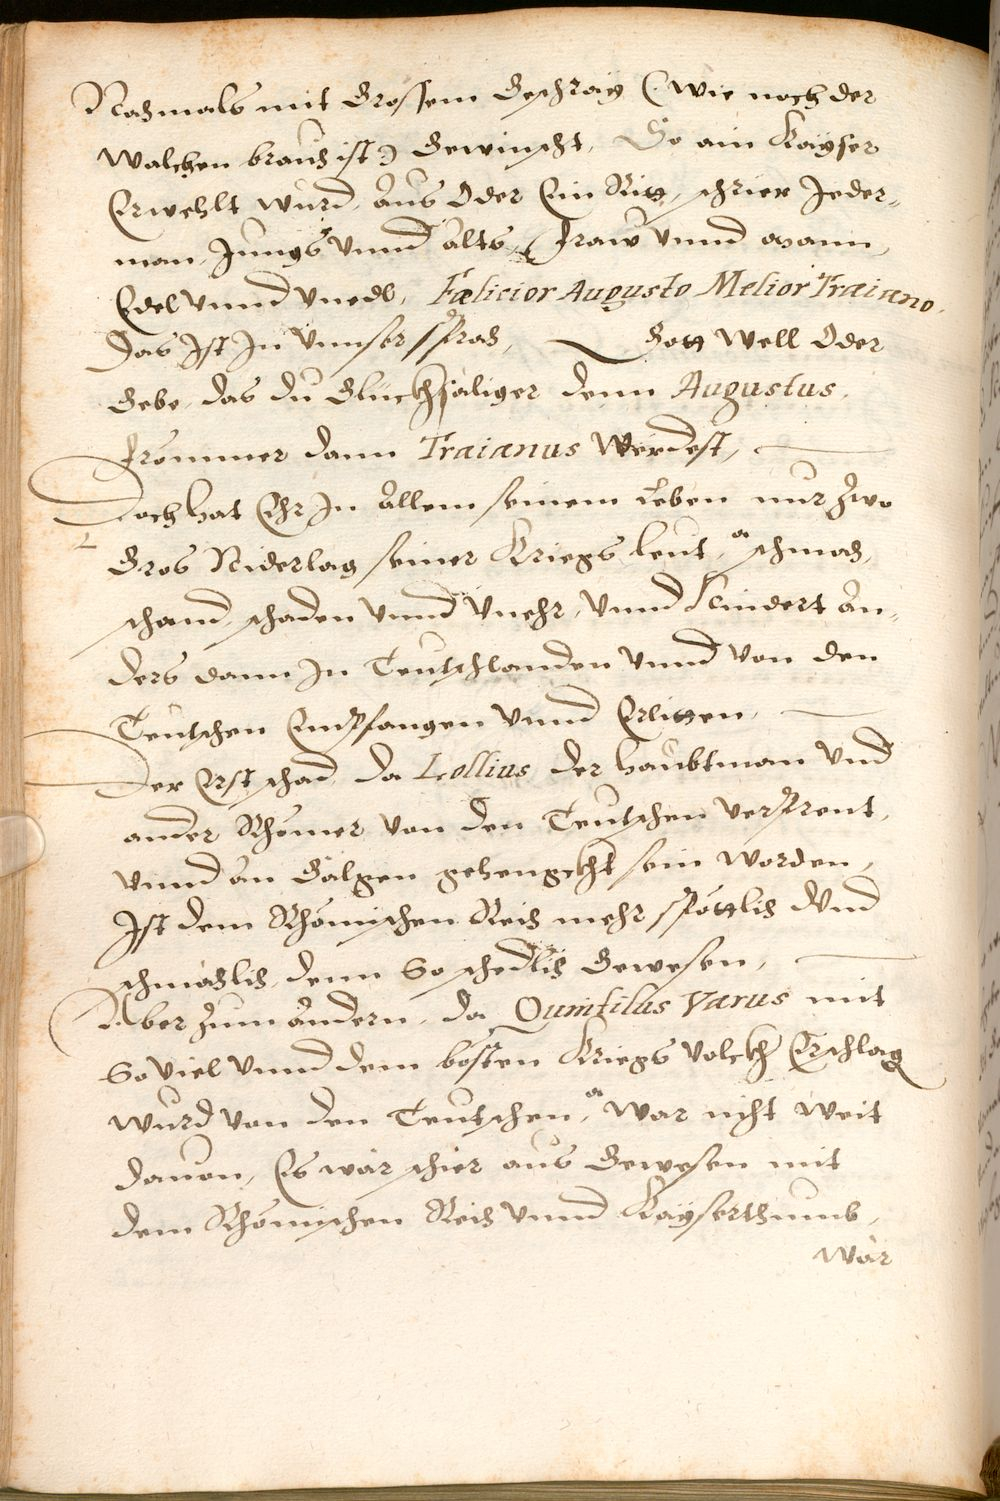 Nachmals mit Grossem Geschray (: wie noch der
Walchen brauch ist :) Gewinscht, So ain Kayser
Erwehlt wurd, Aus Oder Ein Ritt, schrier Jeder-
man, Jungs vnnd Alts, Fraw vnnd Mann,
Edel vnnd Vnedl, Fælicior Augusto Melior Traiano,
Das Ist In Vnnser sprach, Gott Well Oder
Gebe, das du Glückhsäliger denn Augustus,
Frömmer dann Traianus Werdest,
Doch hat Ehr In Allem seinem Leben nur Zwo
Gros Niderlag seiner Kriegs leut, schmach,
schand, schaden Vnnd Vnehr, Vnnd Nindert An-
ders dann In Teutschlanden Vnnd Von den
Teutschen Empfangen Vnnd Erlitten,
Der Erst schad, da Lollius der haubtman Vnd
ander Rhömer Von den Teutschen Verprent,
Vnnd an Galgen gehengckht sein Worden,
Ist dem Rhömischen Reich mehr spöttlich Vnd
schmächlich, denn So schedlich Gewesen,
Aber Zum Andern, da Quintilus Varus mit
So Viel Vnnd dem bösten Kriegs Volckh Erschlag
Wurd Von den Teutschen, War nicht Weit
dauon, Es wär schier aus Gewesen mit
dem Rhömischen Reich Vnnd Kayserthumb,
wär